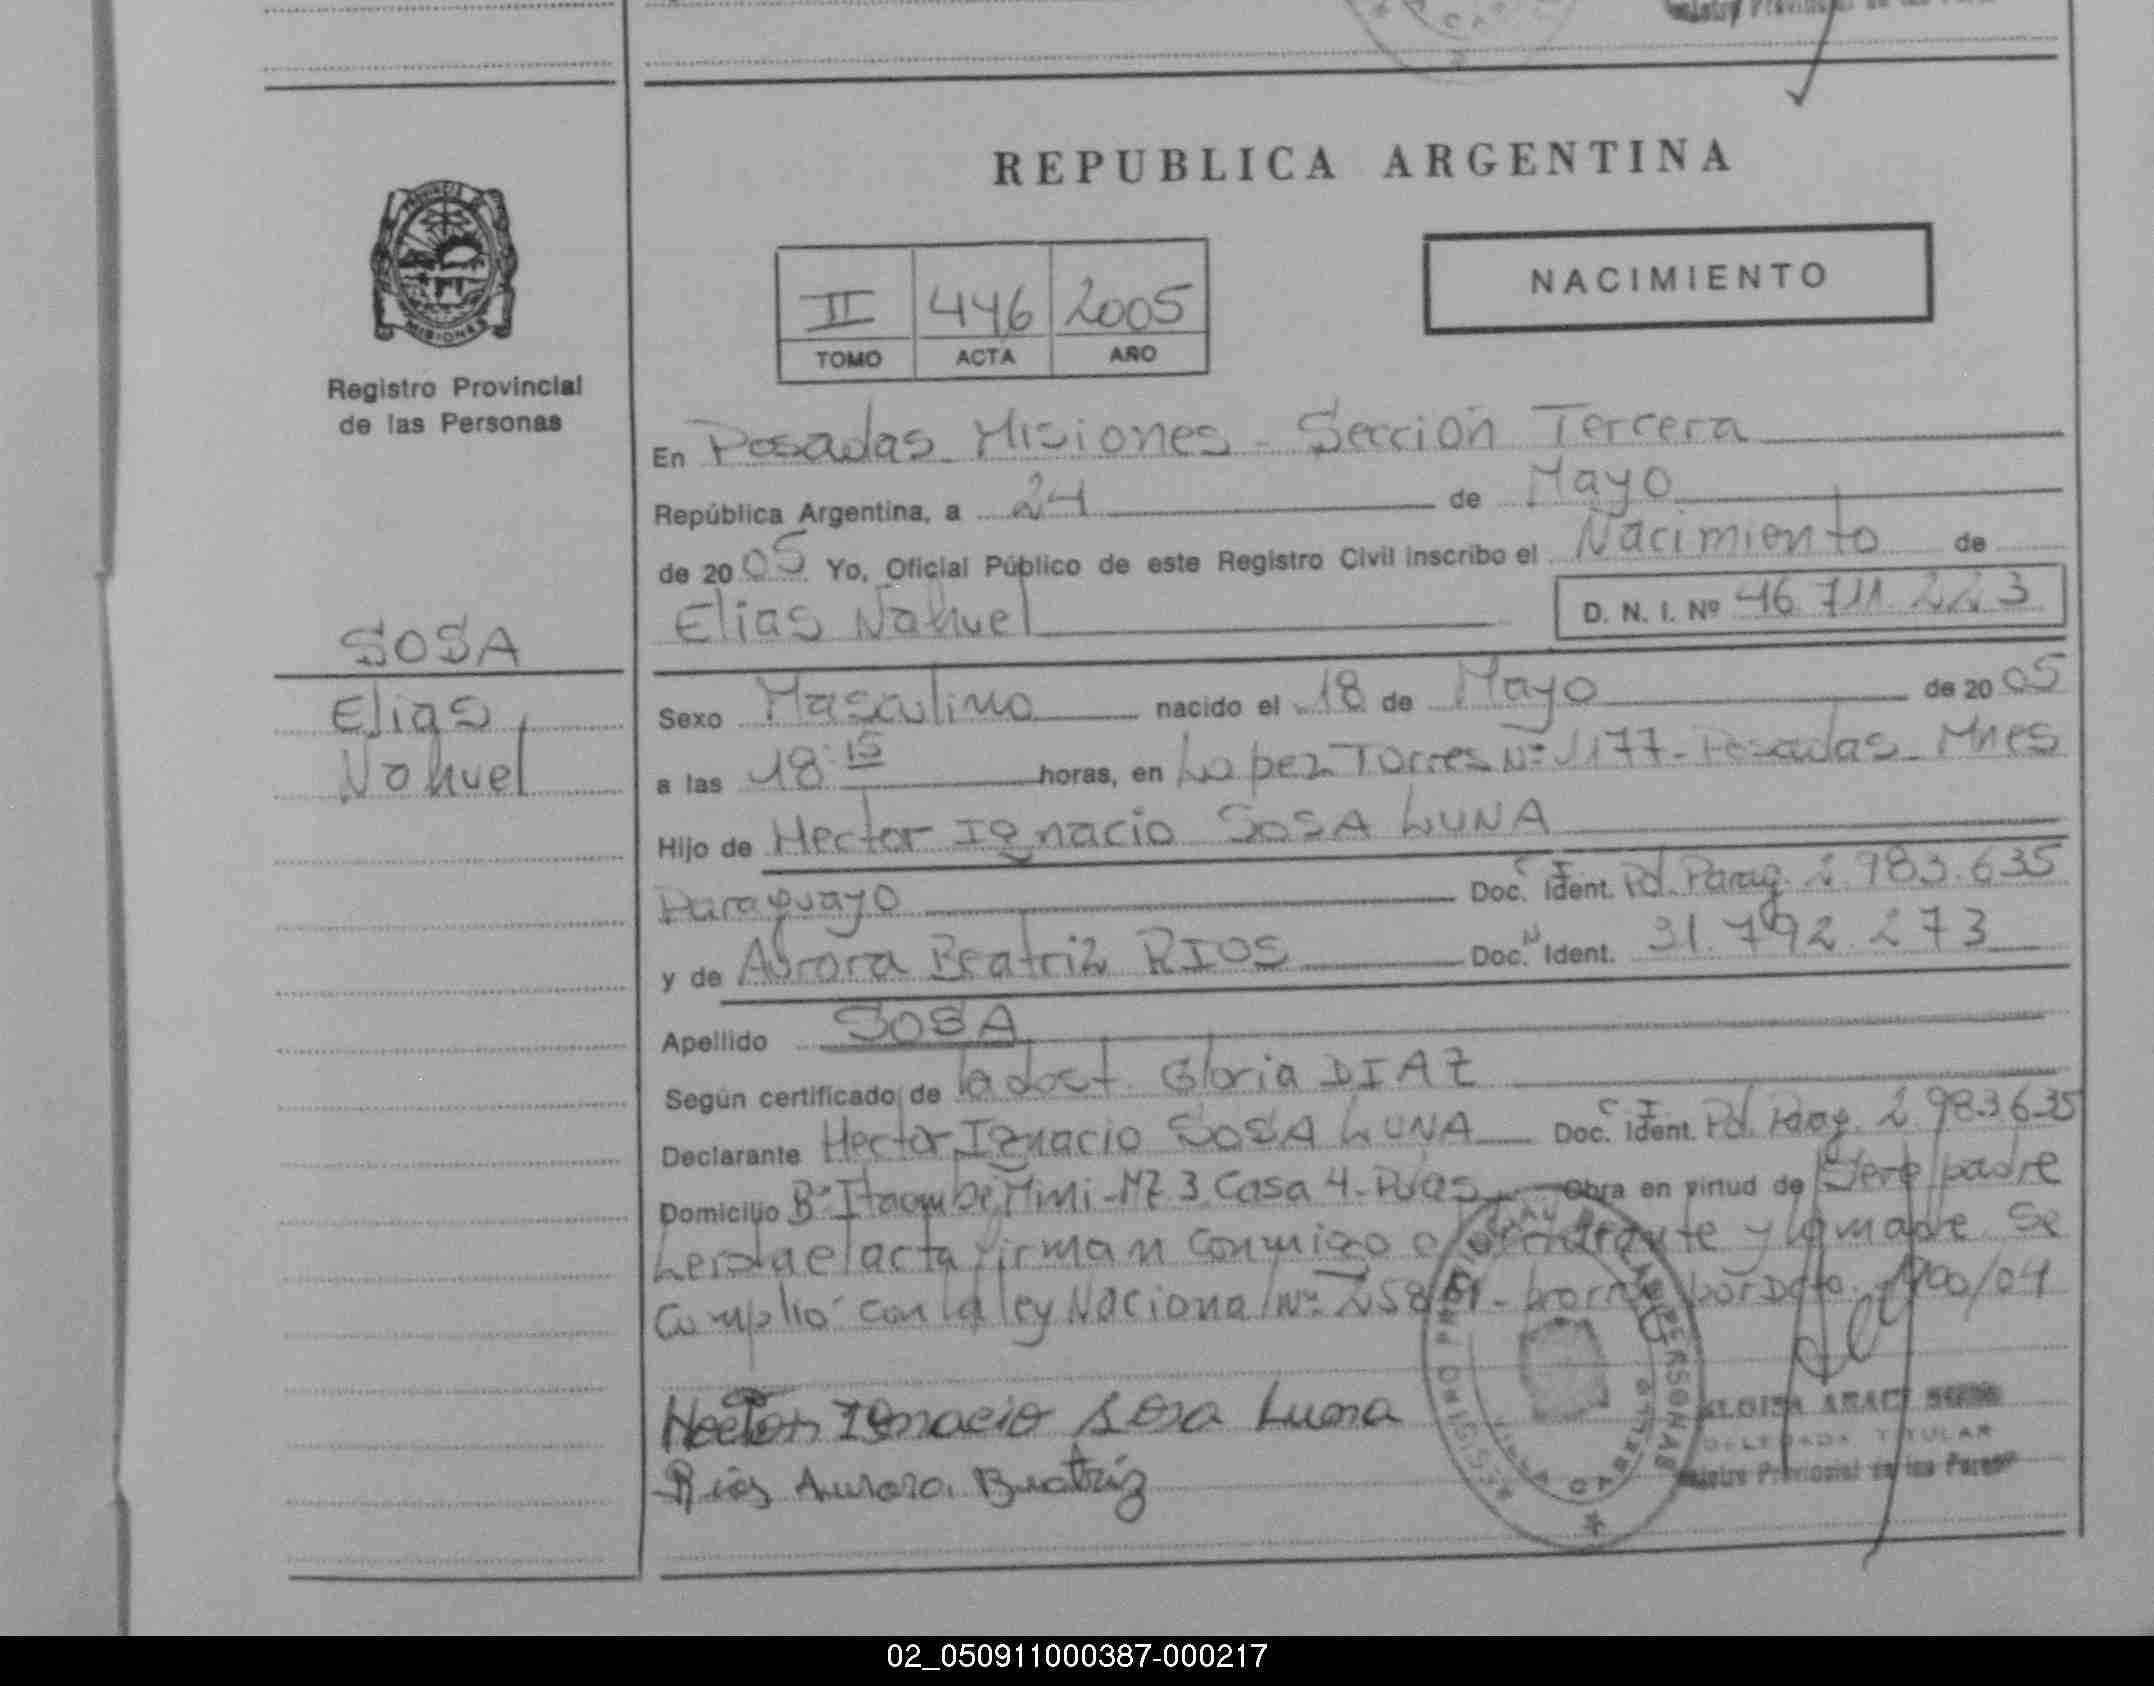 REPUBLICA ARGENTINA
PROVINCIA DE
MISIONES
Registro Provincial
de las Personas
II 446 2005
TOMO ACTA AÑO
NACIMIENTO
En Posadas Misiones - Sección Tercera
República Argentina, a 24 de Mayo
de 2005 Yo, Oficial Público de este Registro Civil inscribo el Nacimiento de
Elias Nahuel D. N. I. Nº 46.711.223
SOSA
Elias
Nahuel
Sexo Masculino nacido el 18 de Mayo de 2005
a las 18:15 horas, en Lopez Torres Nº 1177 - Posadas - Mnes
Hijo de Hector Ignacio SOSA LUNA
Paraguayo Doc. C. Ident. I. Pol. Parag. 2.983.635
y de Aurora Beatriz RIOS Doc. N Ident. 31.792.273
Apellido SOSA
Según certificado de la doct. Gloria DIAZ
Declarante Hector Ignacio SOSA LUNA Doc. C. Ident. I. Pol. Parag. 2.983.635
Domicilio Bº Itaembe Mini - MZ 3 Casa 4 - Pdas Obra en virtud de ser el padre
Leida el acta firman conmigo el declarante y la madre. Se
Cumplio con la ley Nacional Nº 258 por Dcto. /04
Hector Ignacio Sosa Luna
Rios Aurora Beatriz
DELEGADA TITULAR
Registro Provincial de las Personas
02_050911000387-000217